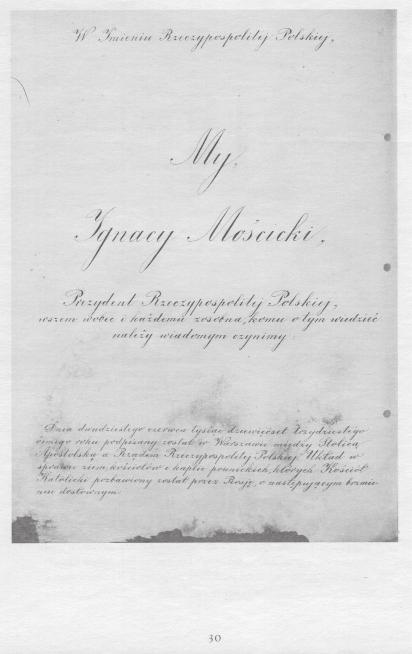 W Imieniu Rzeczypospolitej Polskiej,
My,
Ignacy Mościcki,
Prezydent Rzeczypospolitej Polskiej,
wszem wobec i każdemu zosobna, komu o tym wiedzieć
należy wiadomym czynimy:
Dnia dwudziestego czerwca tysiąc dziewięćset trzydziestego
ósmego roku podpisany został w Warszawie między Stolicą
Apostolską a Rządem Rzeczypospolitej Polskiej Układ w
sprawie ziem, kościołów i kaplic pounickich, których Kościół
Katolicki pozbawiony został przez Rosję, o następującym brzmie-
niu dosłownym:
30